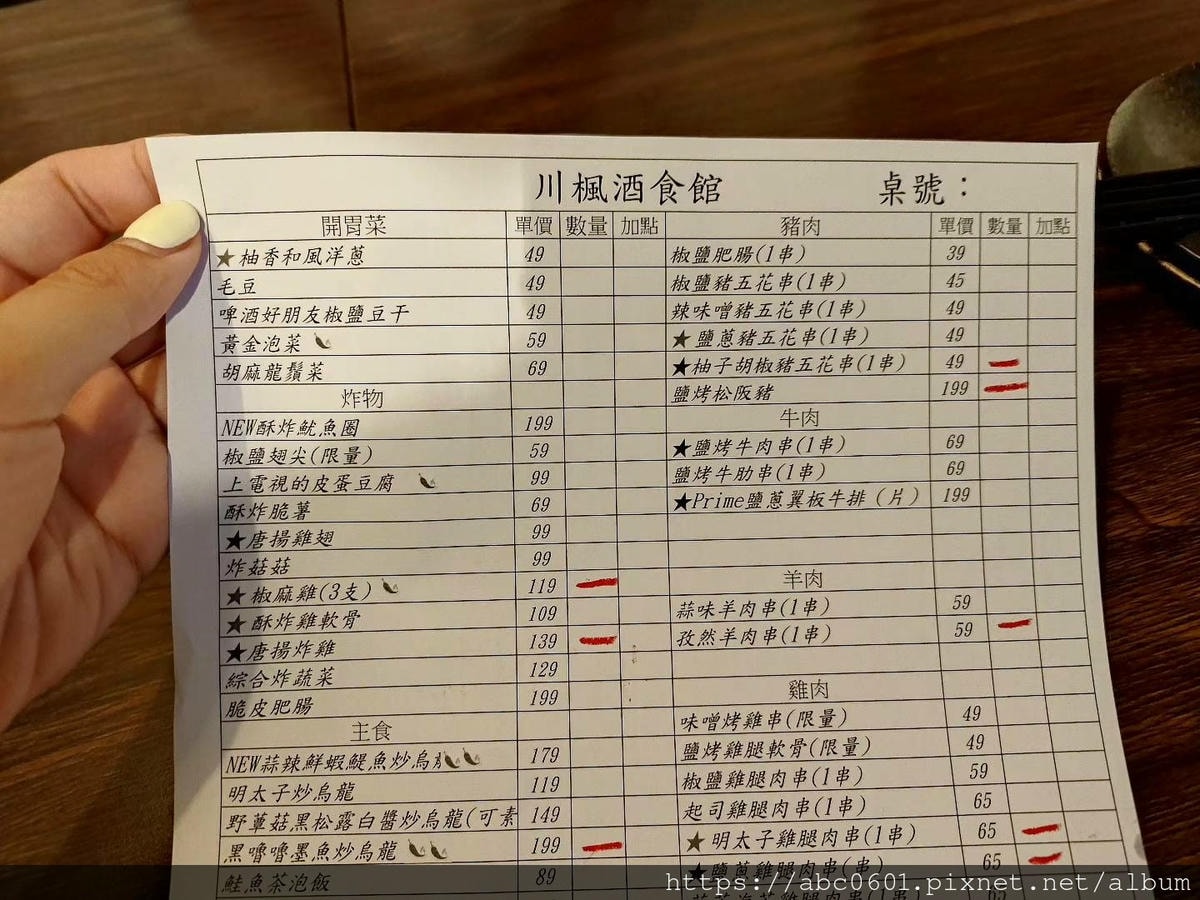 川楓酒食館 桌號：
開胃菜 單價 數量 加點
★柚香和風洋蔥 49
毛豆 49
啤酒好朋友椒鹽豆干 49
黃金泡菜 59
胡麻龍鬚菜 69
炸物
NEW酥炸魷魚圈 199
椒鹽翅尖(限量) 59
上電視的皮蛋豆腐 99
酥炸脆薯 69
★唐揚雞翅 99
炸菇菇 99
★椒麻雞(3支) 119
★酥炸雞軟骨 109
★唐揚炸雞 139
綜合炸蔬菜 129
脆皮肥腸 199
主食
NEW蒜辣鮮蝦鯷魚炒烏 179
明太子炒烏龍 119
野蕈菇黑松露白醬炒烏龍(可素 149
黑嚕嚕墨魚炒烏龍 199
鮭魚茶泡飯 89
豬肉 單價 數量 加點
椒鹽肥腸(1串) 39
椒鹽豬五花串(1串) 45
辣味噌豬五花串(1串) 49
★鹽蔥豬五花串(1串) 49
★柚子胡椒豬五花串(1串) 49
鹽烤松阪豬 199
牛肉
★鹽烤牛肉串(1串) 69
鹽烤牛肋串(1串) 69
★Prime鹽蔥翼板牛排（片） 199
羊肉
蒜味羊肉串(1串) 59
孜然羊肉串(1串) 59
雞肉
味噌烤雞串(限量) 49
鹽烤雞腿軟骨(限量) 49
椒鹽雞腿肉串(1串) 59
起司雞腿肉串(1串) 65
★明太子雞腿肉串(1串) 65
★鹽蔥雞腿肉串(串) 65
https://abc0601.pixnet.net/album